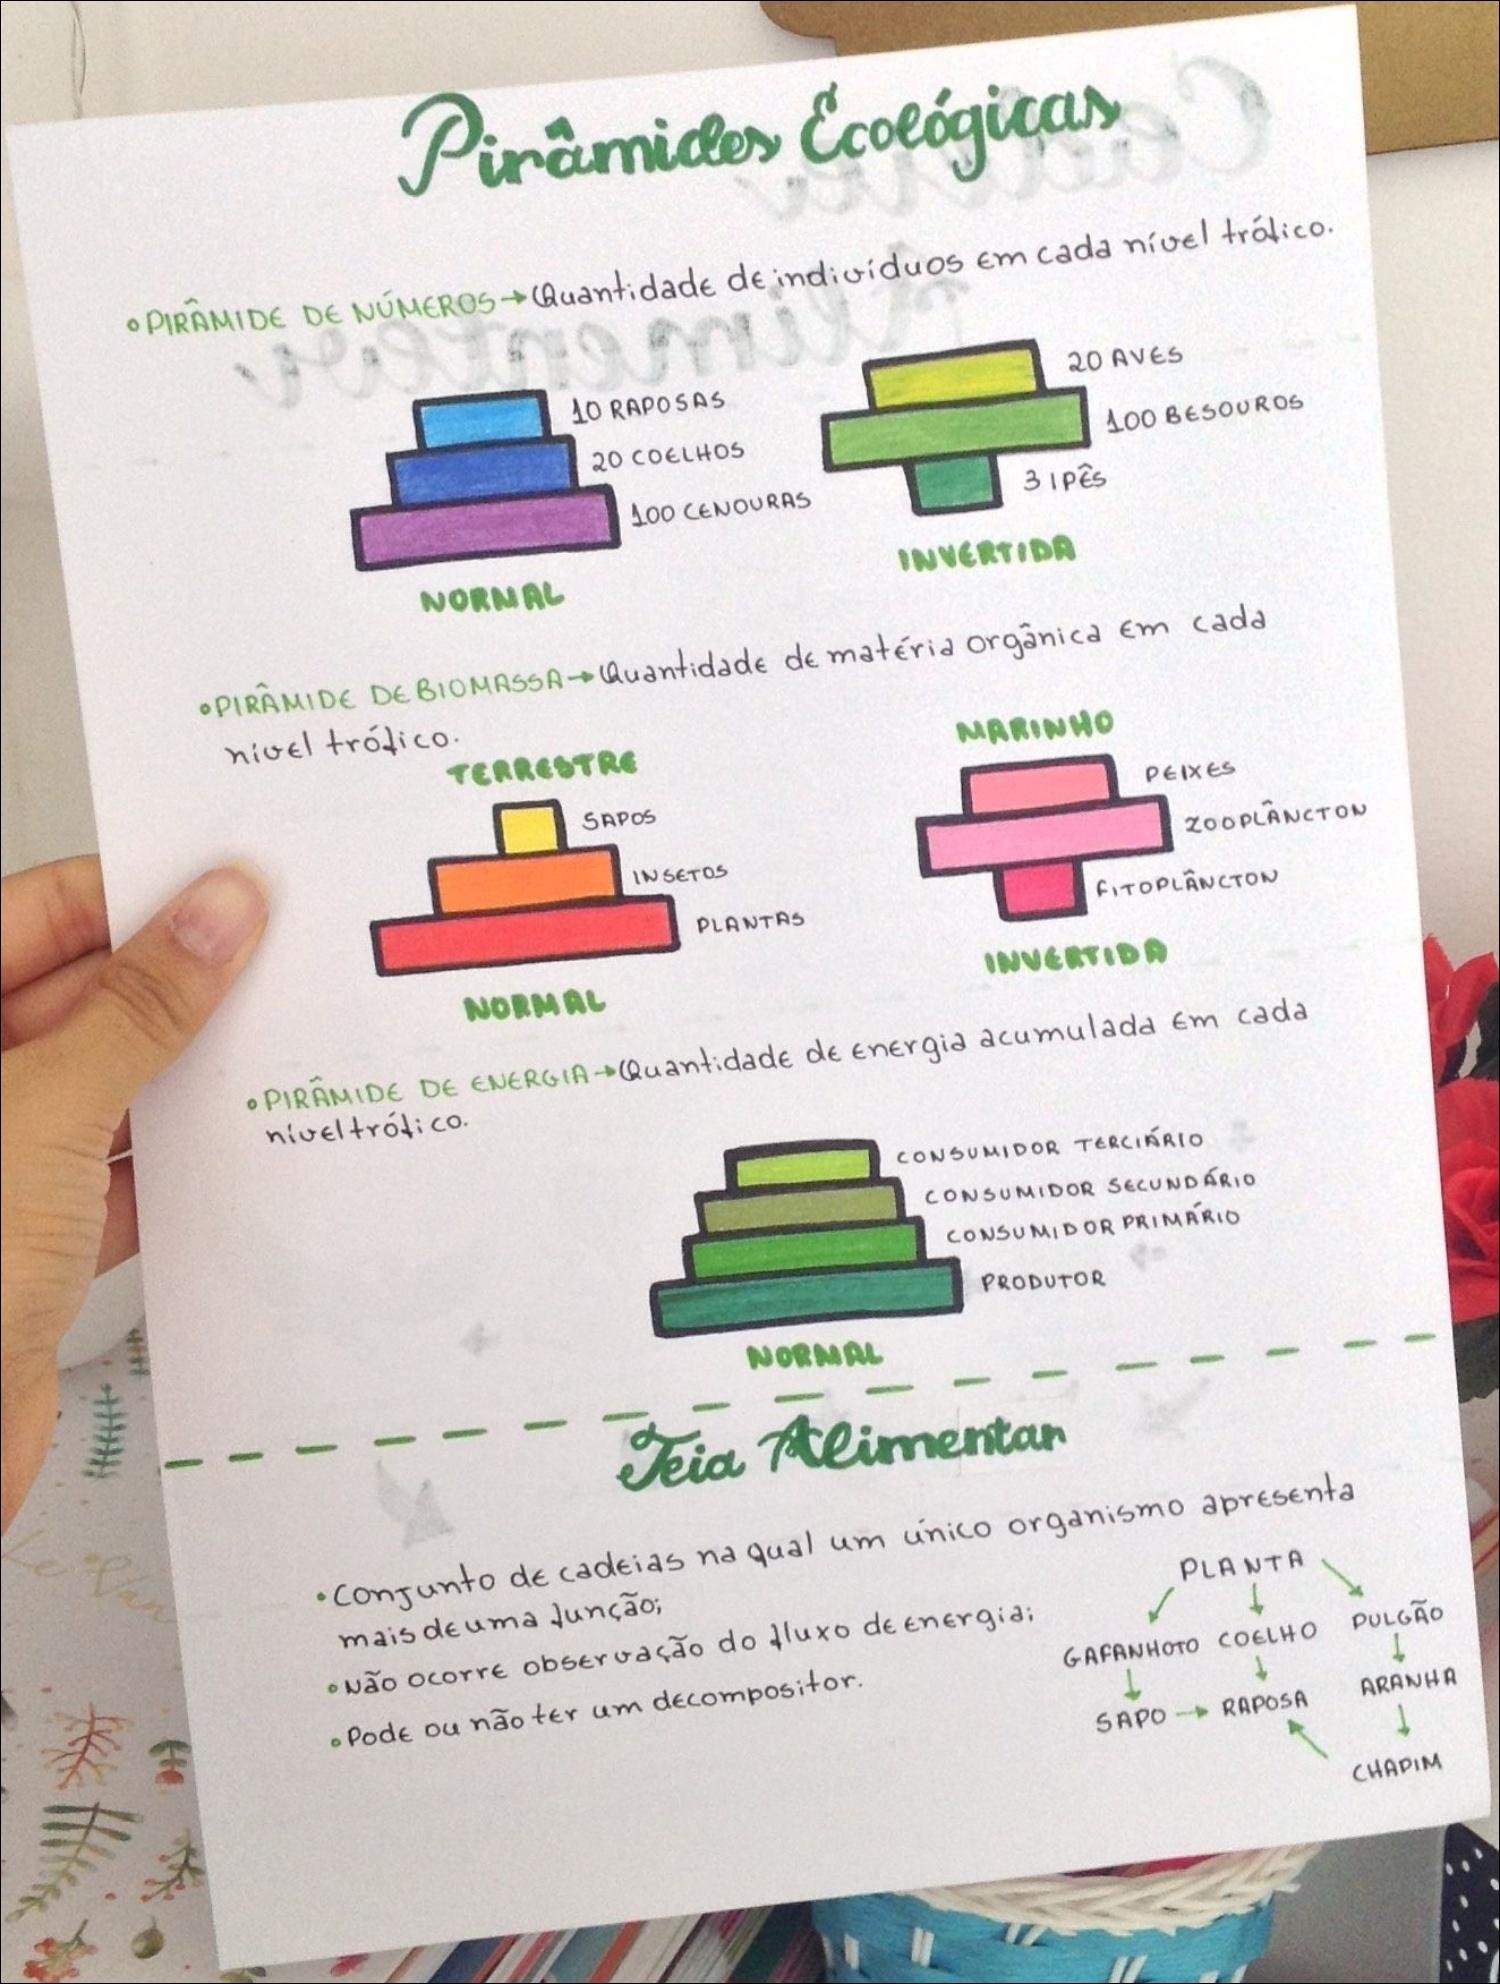 Pirâmides Ecológicas
• PIRÂMIDE DE NÚMEROS → Quantidade de indivíduos em cada nível trófico.
10 RAPOSAS
20 COELHOS
100 CENOURAS
NORMAL
20 AVES
100 BESOUROS
3 IPÊS
INVERTIDA
• PIRÂMIDE DE BIOMASSA → Quantidade de matéria orgânica em cada
nível trófico.
TERRESTRE
SAPOS
INSETOS
PLANTAS
NORMAL
MARINHO
PEIXES
ZOOPLÂNCTON
FITOPLÂNCTON
INVERTIDA
• PIRÂMIDE DE ENERGIA → Quantidade de energia acumulada em cada
nível trófico.
CONSUMIDOR TERCIÁRIO
CONSUMIDOR SECUNDÁRIO
CONSUMIDOR PRIMÁRIO
PRODUTOR
NORMAL
Teia Alimentar
• Conjunto de cadeias na qual um único organismo apresenta
mais de uma função;
• Não ocorre observação do fluxo de energia;
• Pode ou não ter um decompositor.
PLANTA
GAFANHOTO COELHO PULGÃO
SAPO → RAPOSA ARANHA
CHAPIM